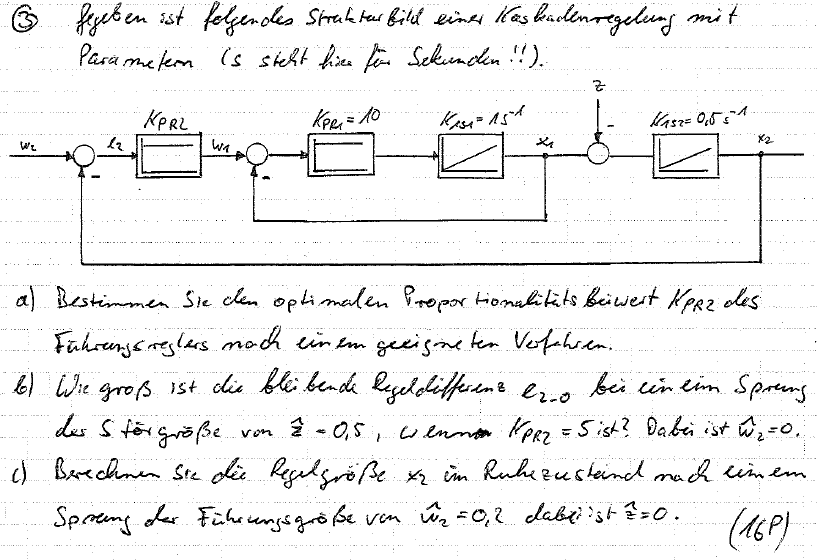 ③ Gegeben ist folgendes Strukturbild einer Kaskadenregelung mit
Parametern (s steht hier für Sekunden!!).
z
K_PR2 K_PR1 = 10 K_IS1 = 1s⁻¹ K_IS2 = 0,5s⁻¹
w₂ e₂ w₁ x₁ - x₂
- -
a) Bestimmen Sie den optimalen Proportionalitätsbeiwert K_PR2 des
Führungsreglers nach einem geeigneten Verfahren.
b) Wie groß ist die bleibende Regeldifferenz e₂₋₀ bei einem Sprung
der Störgröße von ẑ = 0,5, wenn K_PR2 = 5 ist? Dabei ist ŵ₂ = 0.
c) Berechnen Sie die Regelgröße x₂ im Ruhezustand nach einem
Sprung der Führungsgröße von ŵ₂ = 0,2 dabei ist ẑ = 0.
(16P)